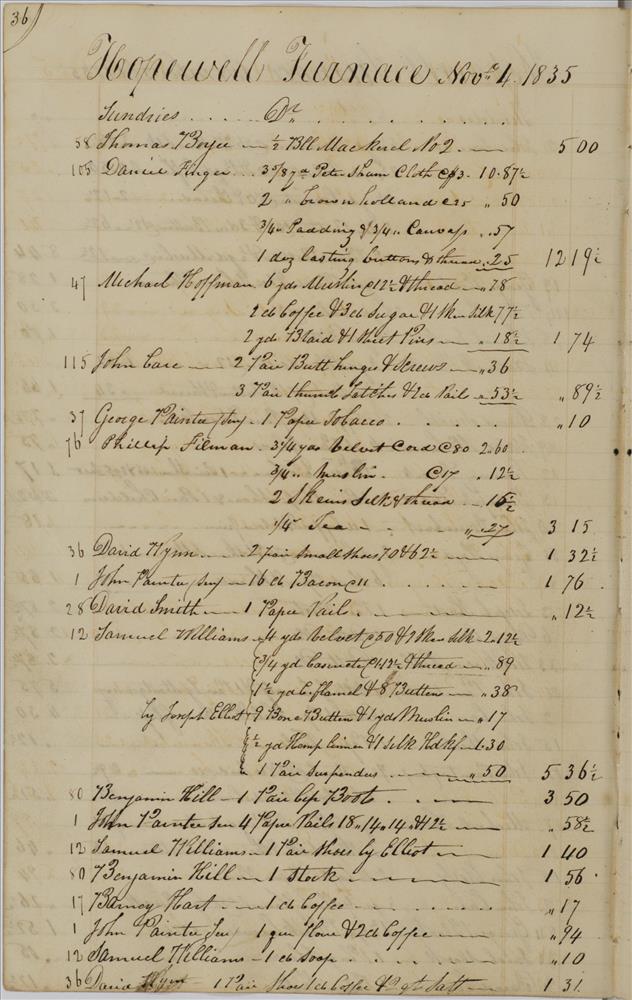 36
Hopewell Furnace Novr. 4. 1835
Sundries . . . . Dr. . . . . . . . . . .
58 Thomas Boyce — ½ Bll Mackerel No 2. — 5 00
105 Daniel Finger . . 3 5/8 yd Peter Sham Cloth @ $3. 10.87½
2 " brown holland @25 " 50
3/4 " Padding & 3/4 " Canvass . 57
1 doz lasting buttons & thread . 25 12 19½
47 Michael Hoffman 6 yds Muslin @12½ & thread — " 78
2 lb Coffee & 3 lb Sugar & 1 Sken Silk 77½
2 yds Braid & 1 Sheet Pins — " 18½ 1 74
115 John Care — 2 Pair Butt hinges & Screws — " 36
3 Pair thumb Latches & 2 lb Nails " 53½ " 89½
37 George Painter Junr — 1 Paper Tobacco . . . . . " 10
76 Phillip Filman . 3 1/4 yds Velvet Cord @80 2.60
3/4 " Muslin . @17 . 12½
2 Skeins Silk & thread — 15½
1/4 " Tea - - - " . 27 3 15
36 David Hynn — 2 pair Small Shoes 70 & 62½ — 1 32½
1 John Painter Senr — 16 lb Bacon @11 . . . . . 1 76
28 David Smith — 1 Paper Nails . . — " 12½
12 Samuel Williams — 4 yds Velvet @50 & 2 Sken Silk — 2.12½
3/4 yd Casinete @1.12½ & thread — " 89
1½ yd C. flannel & 8 Buttons — " 38
by Joseph Elliot 9 Bone Button & 1 yd Muslin — " 17
½ yd Hemp linnen & 1 Silk Hdkf — 1.30
1 Pair Suspenders — " 50 5 36½
80 Benjamin Hill — 1 Pair Boots . . — 3 50
1 John Painter Sen 4 Paper Nails 18 " 14 " 14 " & 12½ — " 58½
12 Samuel Williams — 1 Pair Shoes by Elliot — 1 40
80 Benjamin Hill — 1 Stock — 1 56
17 Barney Hart — 1 lb Coffee — " 17
1 John Painter Sen 1 qur flour & 2 lb Coffee — " 94
12 Samuel Williams — 1 lb Soap . — " 10
36 David Hynn 1 Pair Shoes 1 lb Coffee & 2 qt Salt — 1 31